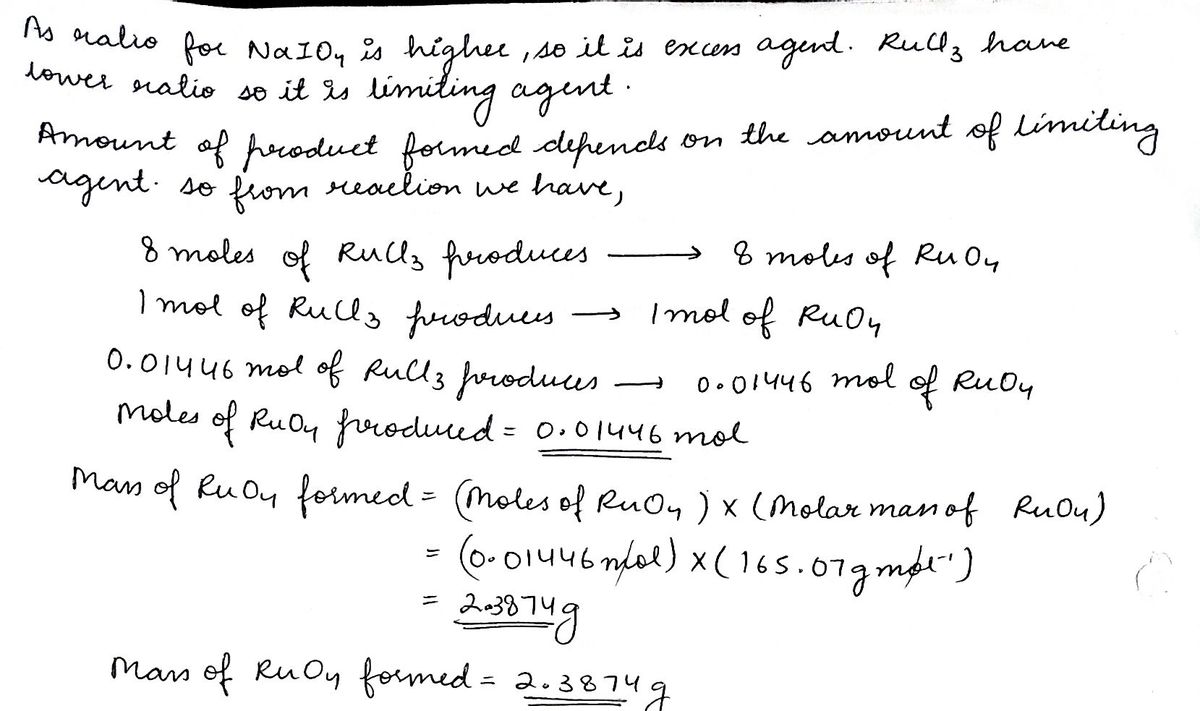 As ratio for NaIO4 is higher, so it is excess agent. RuCl3 have
lower ratio so it is limiting agent.
Amount of product formed depends on the amount of limiting
agent. so from reaction we have,
8 moles of RuCl3 produces ⟶ 8 moles of RuO4
1 mol of RuCl3 produces → 1 mol of RuO4
0.01446 mol of RuCl3 produces → 0.01446 mol of RuO4
Moles of RuO4 produced = 0.01446 mol
Mass of RuO4 formed = (Moles of RuO4) x (Molar mass of RuO4)
= (0.01446 mol) x (165.07 g mol⁻¹)
= 2.3874 g
Mass of RuO4 formed = 2.3874 g